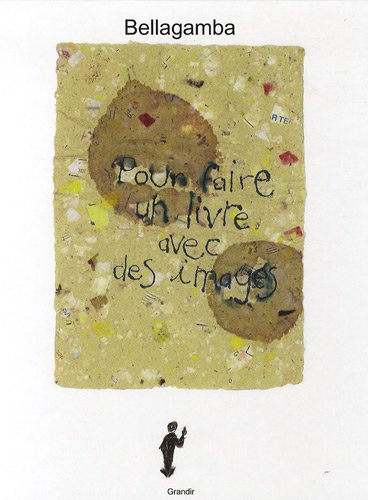 Bellagamba
ARTE
Pour faire
un livre
avec
des images
Grandir